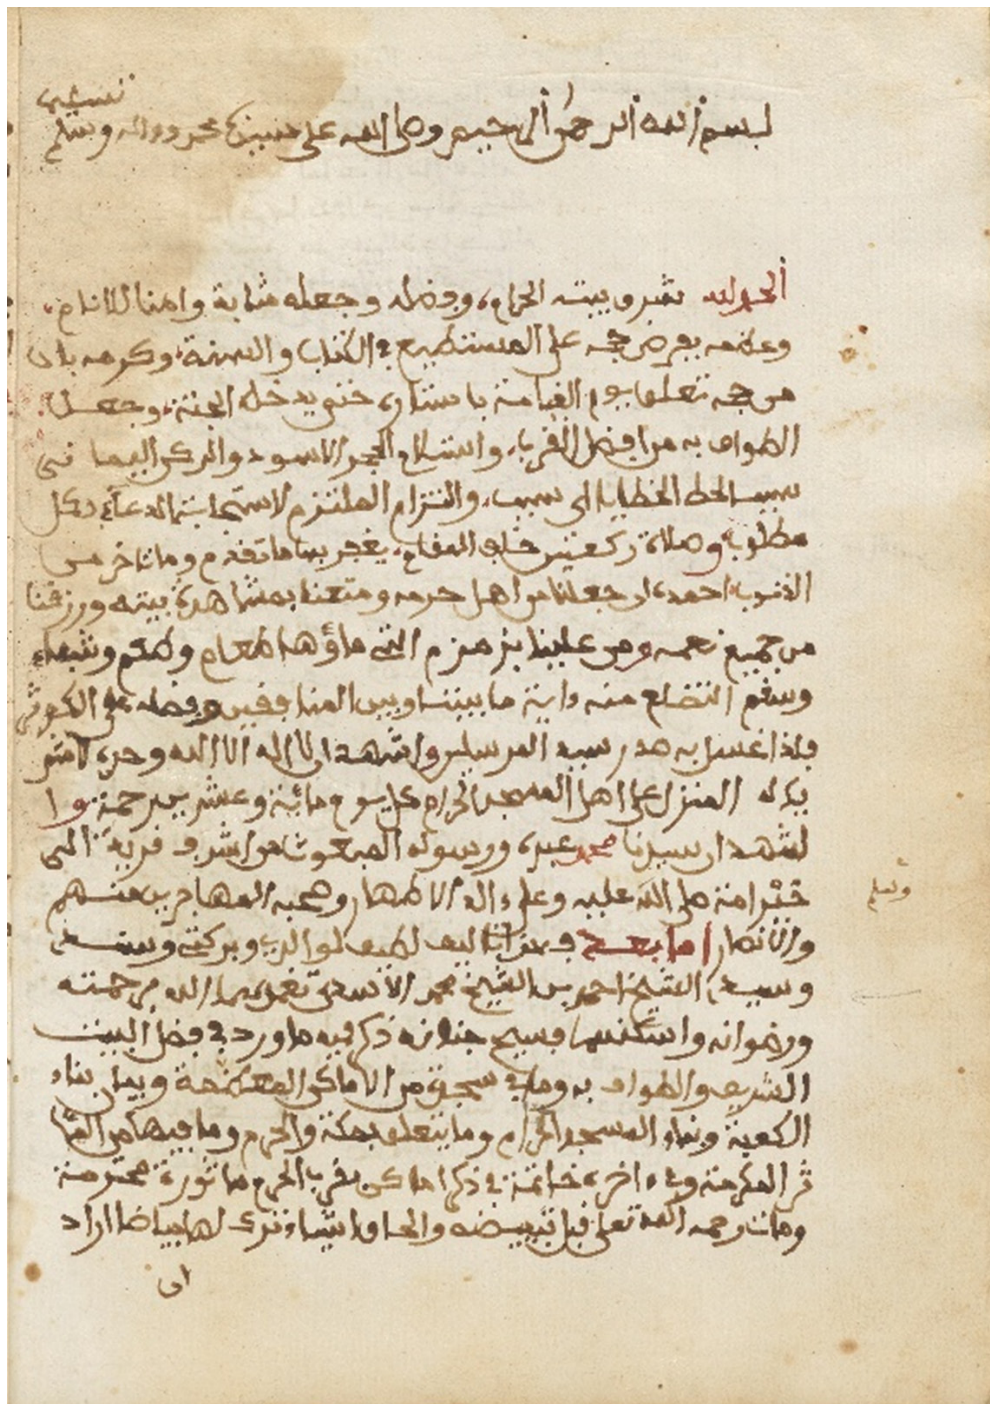 بسم الله الرحمن الرحيم وصلى الله على نبينا محمد وءاله وسلم
تسليما
الحمد لله شرف بيته الحرام، وفضله وجعله مثابة وامنا للانام،
وعظمه بفرض حجه على المستطيع في الكتاب والسنة، وكرمه بان
من حجه تعلق يوم القيامة باستاره حتى يدخل الجنة، وجعل
الطواف به من افضل القرب، واستلام الحجر الاسود والركن اليماني
سببا لحط الخطايا، والتزام الملتزم لاستجابة الدعاء بكل
مطلوب وصلاة ركعتين خلف المقام، يغفر بها ما تقدم وما تاخر من
الذنوب احمده ان جعلنا من اهل حرمه ومتعنا بمشاهدة بيته ورزقنا
من جميع نعمه ومن علينا بزمزم التي ماؤها طعام وطعم وشفاء
وسقم التضلع منه ءاية ما بيننا وبين المنافقين وفضله على الكوثر
فلذا غسل به صدر سيد المرسلين واشهد ان لا اله الا الله وحده لا شر
يك له المنزل على اهل المسجد الحرام كل يوم مائة وعشرين رحمة وا
شهد ان سيدنا محمد عبده ورسوله المبعوث من اشرف قرية الى
خير امة صلى الله عليه وعلى ءاله الاطهار وصحبه المهاجرين منهم
وسلم
والانصار اما بعد فهذا تاليف لطيف لوالدي وبركتي وسندي
وسيدي الشيخ احمد بن الشيخ محمد الاسدي تغمدهما الله برحمته
ورضوانه واسكنهما فسيح جنانه ذكر فيه ما ورد في فضل البيت
الشريف والطواف به وما في من الاماكن المعظمة وبيان بناء
الكعبة وبناء المسجد الحرام وما يتعلق بمكة والحرم وما فيها من المئا
ثر المكرمة وفي ءاخره خاتمة في ذكر اماكن بقرب الحرم ماثورة محترمة
ومات رحمه الله تعالى قبل تبييضه والحاق اشياء ترك لها بياضا اراد
ان